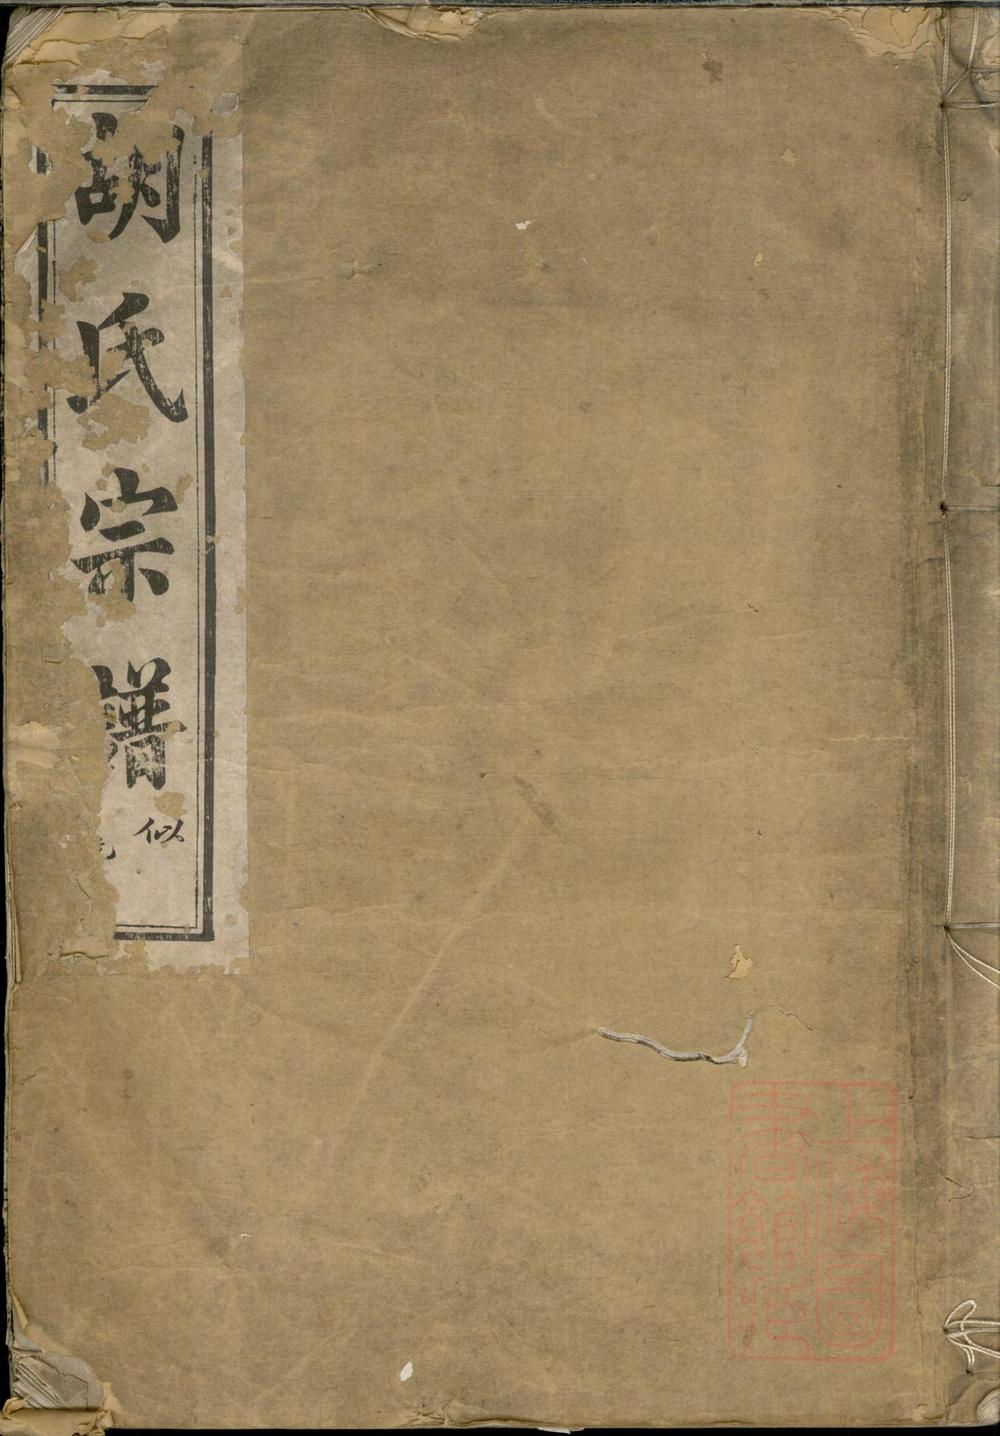 胡氏宗譜
似
上海圖
書館藏